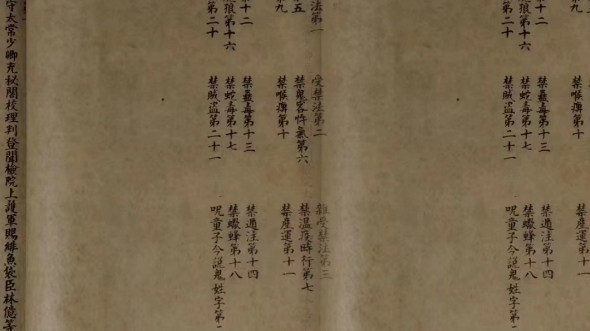 九 禁喉痹第十 禁產運第十
十二 禁蠱毒第十三 禁遁注第十四
狼第十六 禁蛇毒第十七 禁蠍蜂第十八
第二十 禁賊盜第二十一 呪童子令說鬼姓字第
法第一 受禁法第二 雜受禁法第三
五 禁鬼客忤氣第六 禁溫疫時行第七
九 禁喉痹第十 禁產運第十一
十二 禁蠱毒第十三 禁遁注第十四
狼第十六 禁蛇毒第十七 禁蠍蜂第十八
第二十 禁賊盜第二十一 呪童子令說鬼姓字第
守太常少卿充秘閣校理判登聞檢院上護軍賜緋魚袋臣林億等